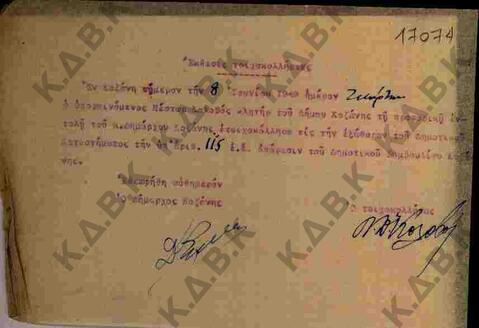 17074
Έκθεσις τοιχοκολλήσεως
Έν Κοζάνη σήμερον τήν 8 Ιουνίου 19 ημέραν
ο υποφαινόμενος Νέστωρ κλητήρ του Δήμου Κοζάνης τη προφορική εν
τολή του κ.Δημάρχου Κοζάνης ετοιχοκόλλησα εις την εξώθυραν του Δημοτικού
Καταστήματος την υπ αριθ. 115 ε.έ. απόφασιν του Δημοτικού Συμβουλίου Κοζά
νης.
Εθεωρήθη αυθημερόν
Ο Δήμαρχος Κοζάνης
Ο τοιχοκολλήσας
Κ.Δ.Β.Κ